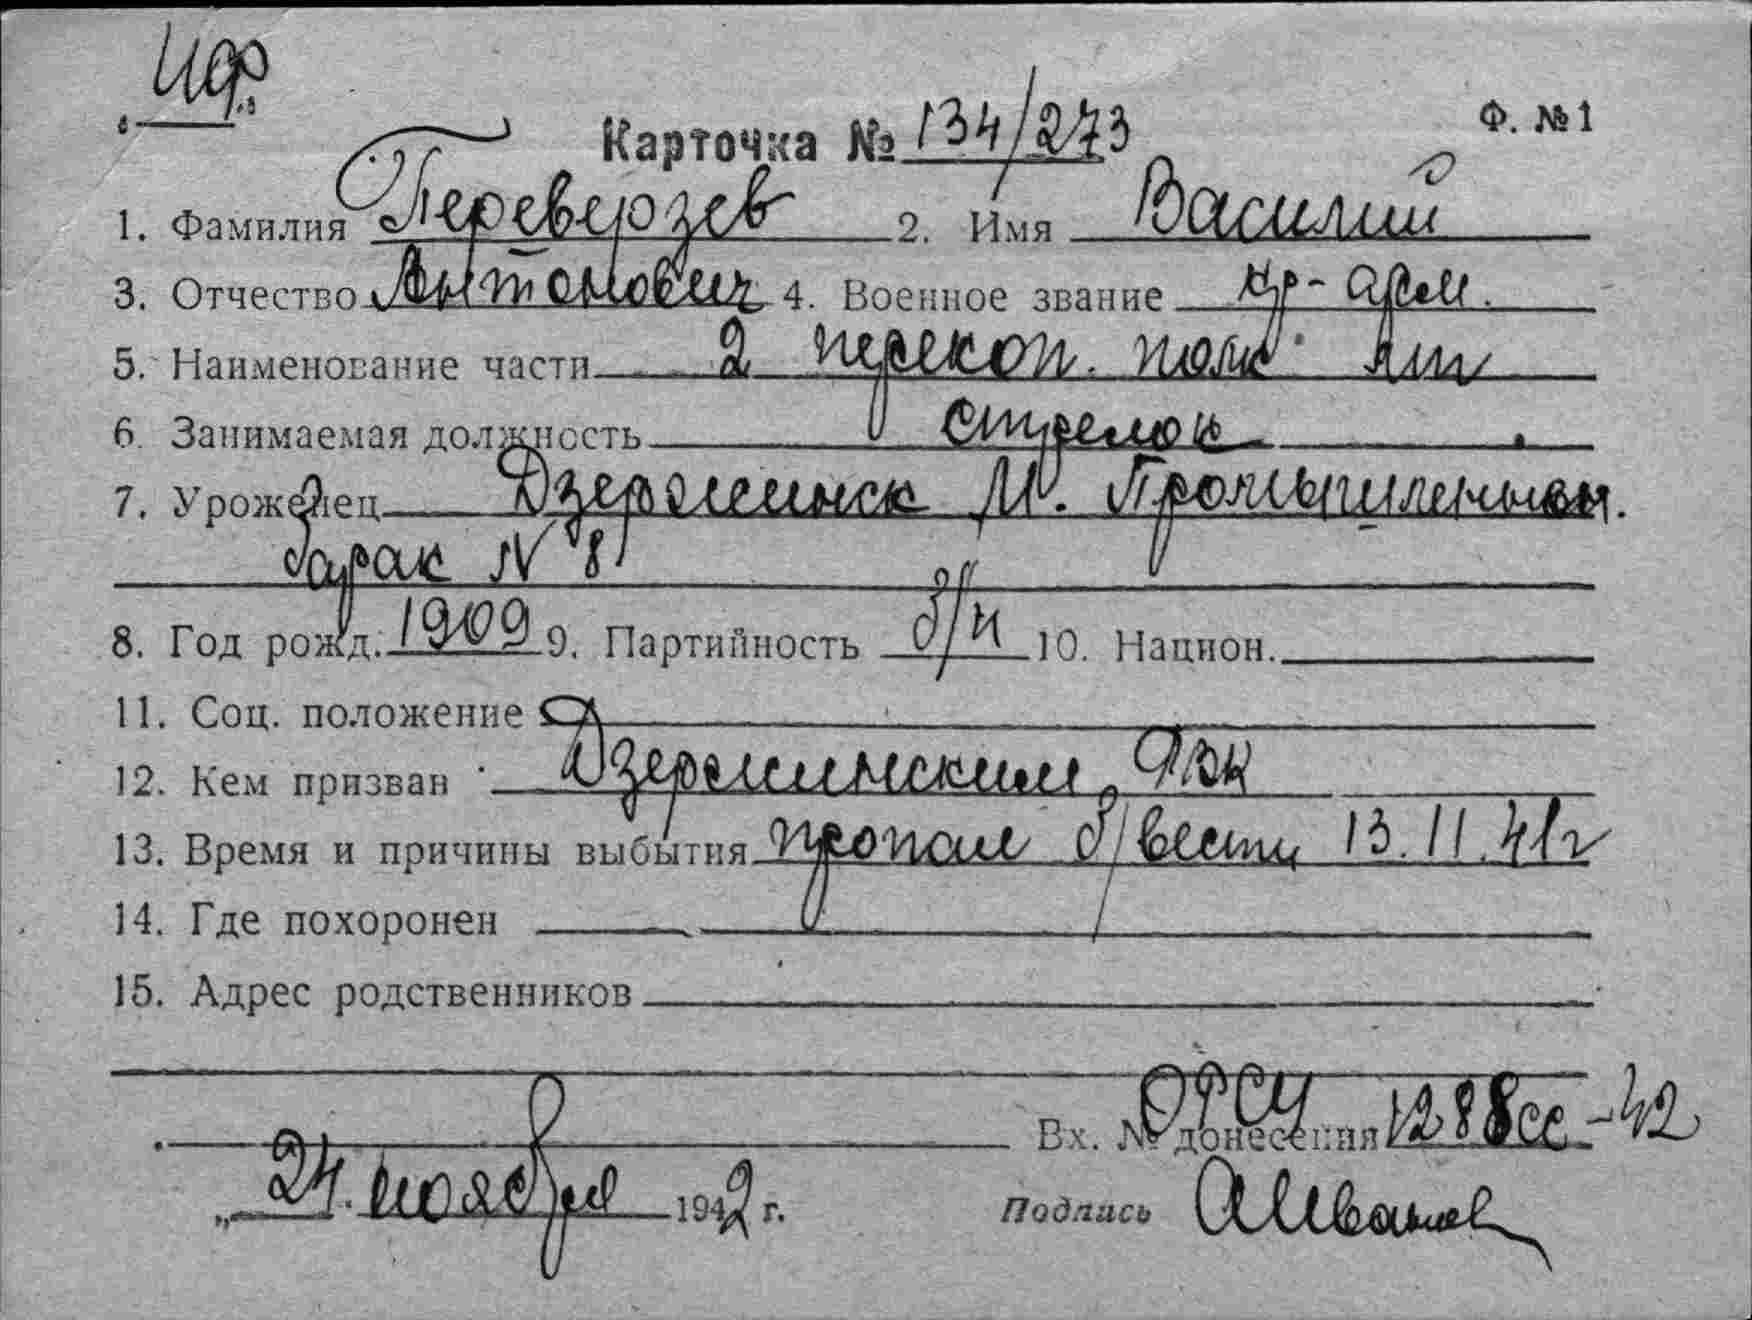 Ф. №1
Карточка № 134/273
1. Фамилия Переверзев 2. Имя Василий
3. Отчество Антонович 4. Военное звание кр-арм.
5. Наименование части 2 перекоп. полк
6. Занимаемая должность стрелок
7. Уроженец Дзержинск М. Промышленная.
барак N 8
8. Год рожд. 1909 9. Партийность б/п 10. Национ.
11. Соц. положение
12. Кем призван Дзержинским РВК
13. Время и причины выбытия пропал б/вести 13.11.41г
14. Где похоронен
15. Адрес родственников
Вх. № донесения 1288сс-42
„24. ноября 1942 г. Подпись